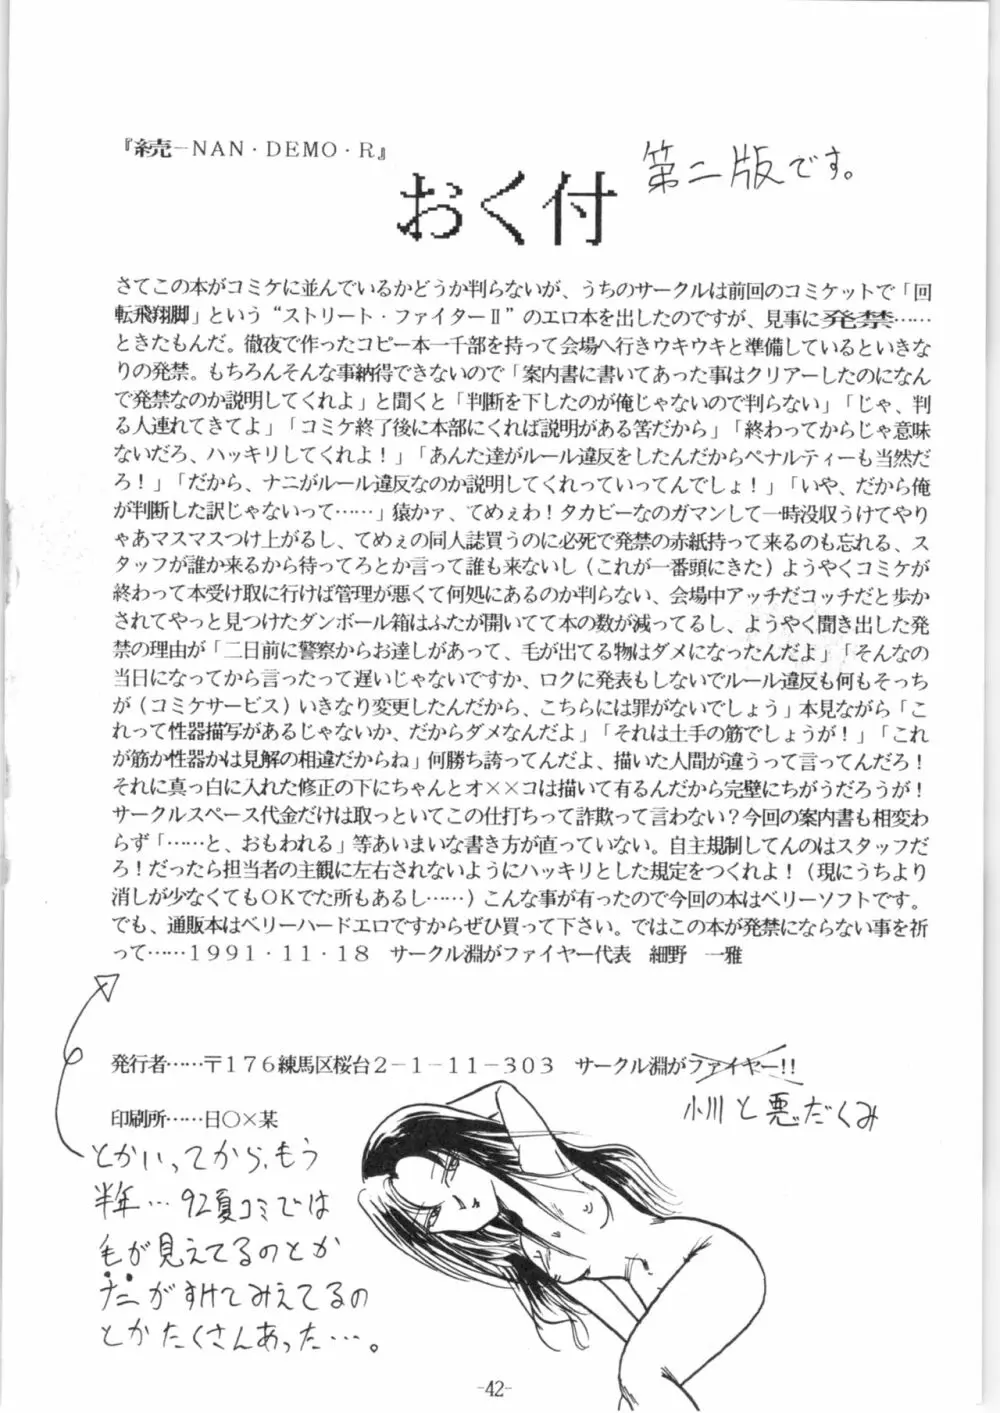 『続－NAN・DEMO・R』
第二版です。
おく付
さてこの本がコミケに並んでいるかどうか判らないが、うちのサークルは前回のコミケットで「回
転飛翔脚」という“ストリート・ファイターⅡ”のエロ本を出したのですが、見事に発禁……
ときたもんだ。徹夜で作ったコピー本一千部を持って会場へ行きウキウキと準備しているといきな
りの発禁。もちろんそんな事納得できないので「案内書に書いてあった事はクリアーしたのになん
で発禁なのか説明してくれよ」と聞くと「判断を下したのが俺じゃないので判らない」「じゃ、判
る人連れてきてよ」「コミケ終了後に本部にくれば説明がある筈だから」「終わってからじゃ意味
ないだろ、ハッキリしてくれよ！」「あんた達がルール違反をしたんだからペナルティーも当然だ
ろ！」「だから、ナニがルール違反なのか説明してくれっていってんでしょ！」「いや、だから俺
が判断した訳じゃないって……」猿かァ、てめぇわ！タカビーなのガマンして一時没収うけてやり
ゃあマスマスつけ上がるし、てめぇの同人誌買うのに必死で発禁の赤紙持って来るのも忘れる、ス
タッフが誰か来るから待ってろとか言って誰も来ないし（これが一番頭にきた）ようやくコミケが
終わって本受け取に行けば管理が悪くて何処にあるのか判らない、会場中アッチだコッチだと歩か
されてやっと見つけたダンボール箱はふたが開いてて本の数が減ってるし、ようやく聞き出した発
禁の理由が「二日前に警察からお達しがあって、毛が出てる物はダメになったんだよ」「そんなの
当日になってから言ったって遅いじゃないですか、ロクに発表もしないでルール違反も何もそっち
が（コミケサービス）いきなり変更したんだから、こちらには罪がないでしょう」本見ながら「こ
れって性器描写があるじゃないか、だからダメなんだよ」「それは土手の筋でしょうが！」「これ
が筋か性器かは見解の相違だからね」何勝ち誇ってんだよ、描いた人間が違うって言ってんだろ！
それに真っ白に入れた修正の下にちゃんとオ××コは描いて有るんだから完璧にちがうだろうが！
サークルスペース代金だけは取っといてこの仕打ちって詐欺って言わない？今回の案内書も相変わ
らず「……と、おもわれる」等あいまいな書き方が直っていない。自主規制してんのはスタッフだ
ろ！だったら担当者の主観に左右されないようにハッキリとした規定をつくれよ！（現にうちより
消しが少なくてもOKでた所もあるし……）こんな事が有ったので今回の本はベリーソフトです。
でも、通販本はベリーハードエロですからぜひ買って下さい。ではこの本が発禁にならない事を祈
って……１９９１・１１・１８　サークル淵がファイヤー代表　細野　一雅
発行者……〒１７６練馬区桜台２－１－１１－３０３　サークル淵がファイヤー!!
小川と悪だくみ
印刷所……日〇×某
とかいってから、もう
半年…92夏コミでは
毛が見えてるのとか
ナニがすけてみえてるの
とかたくさんあった…。
-42-